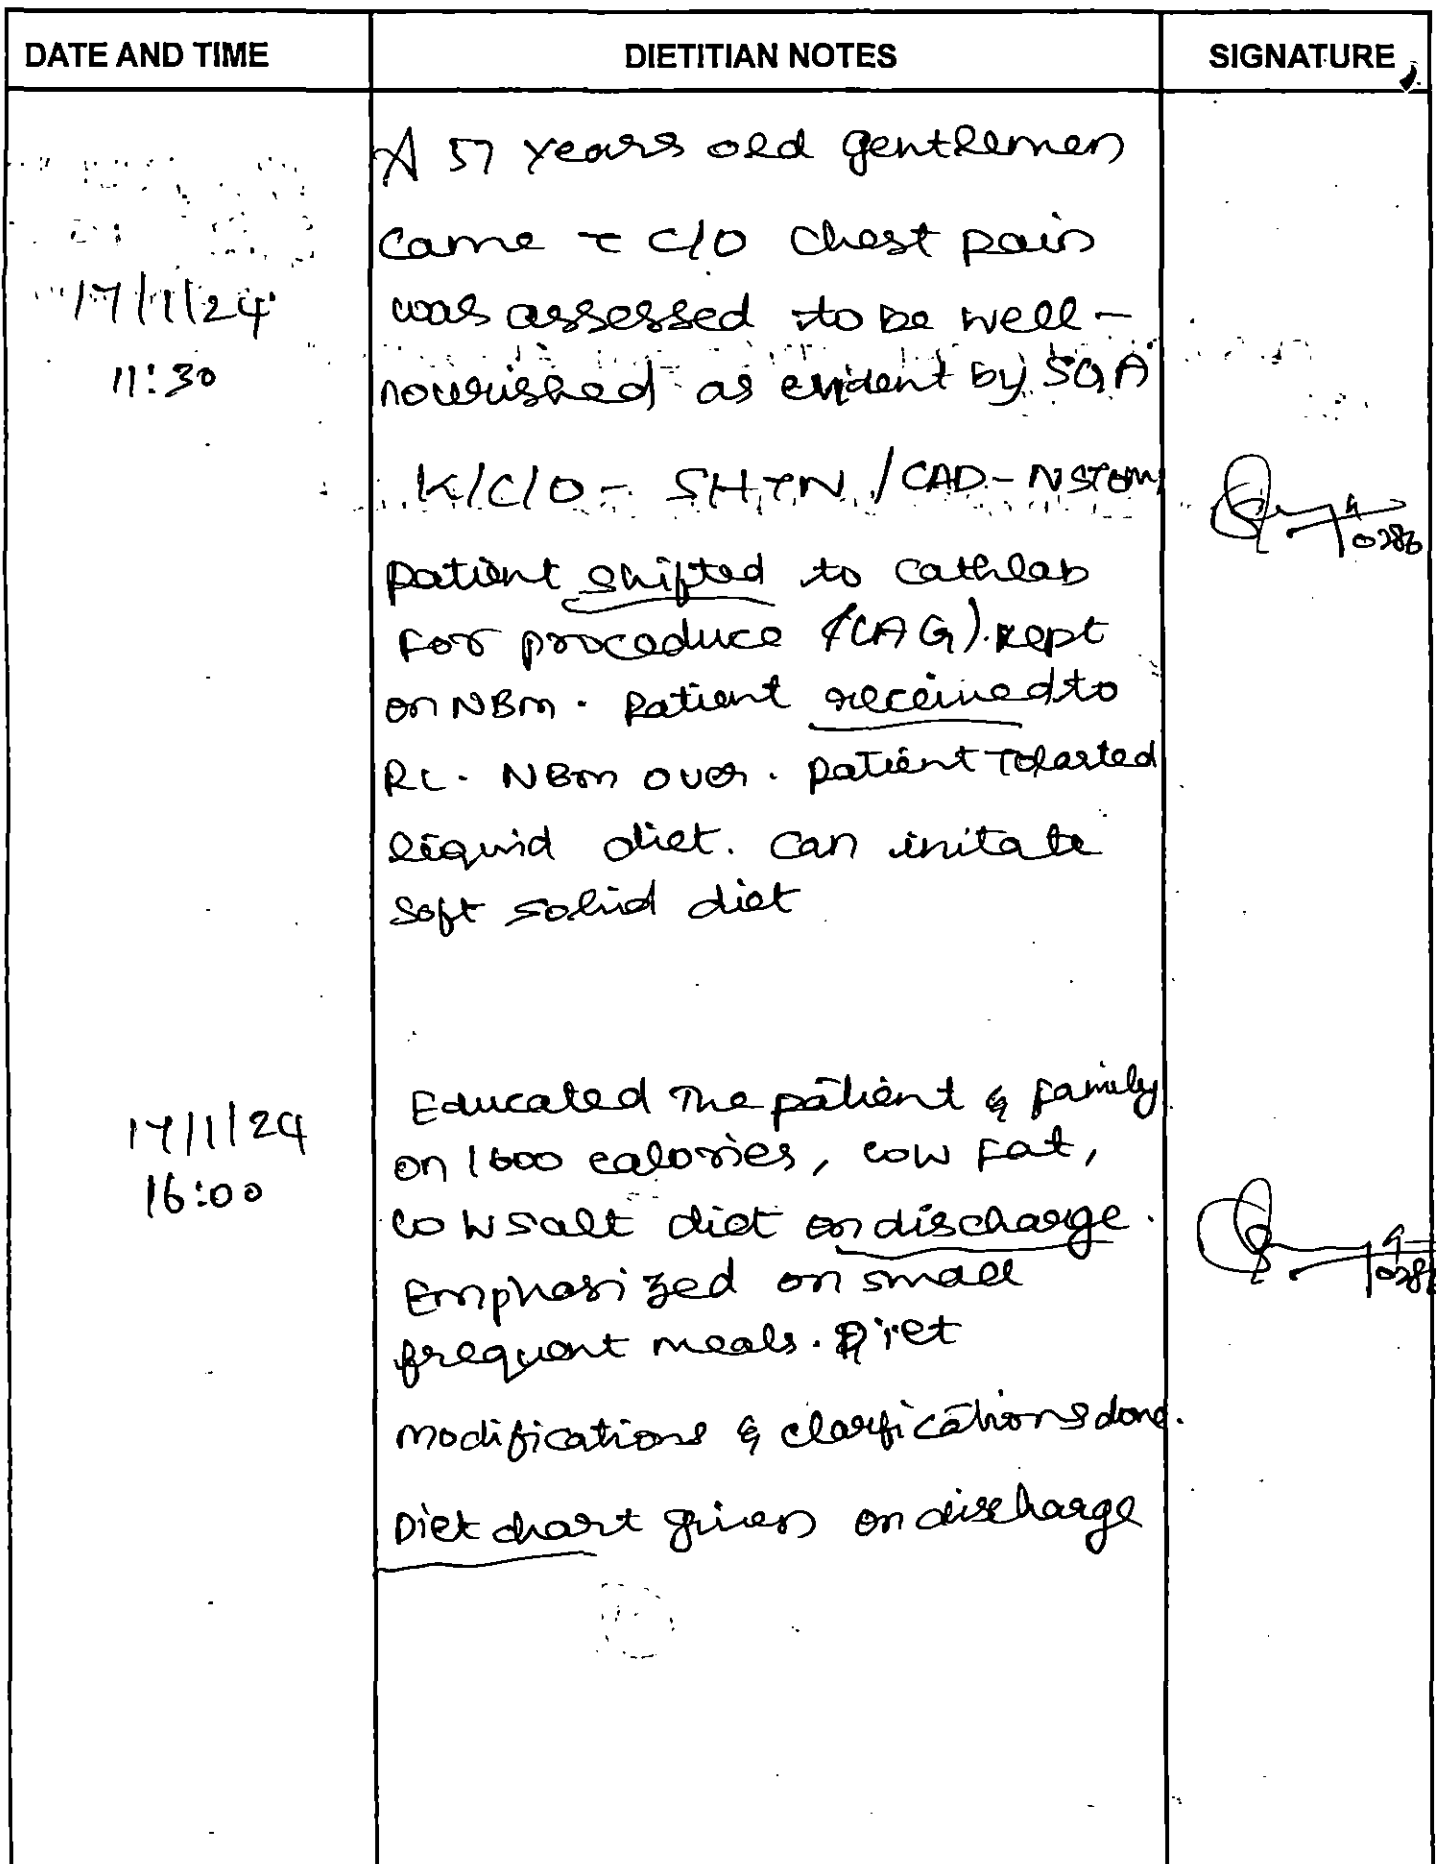 DATE AND TIME DIETITIAN NOTES SIGNATURE
A 57 years old gentlemen
came c̄ c/o chest pain
17/1/24 was assessed to be well-
11:30 nourished as evident by SGA
K/C/O - SHTN / CAD - NSTEMI
patient shifted to cathlab
For proceduce (CAG). kept
on NBM. Patient received to
RL. NBM over. patient Tolarted
liquid diet. can initate
soft solid diet
Educated The patient & family
17/1/24 on 1600 calories, low Fat,
16:00 low salt diet on discharge.
Emphasized on small
frequent meals. Diet
modifications & clarfications done.
Diet chart given on discharge